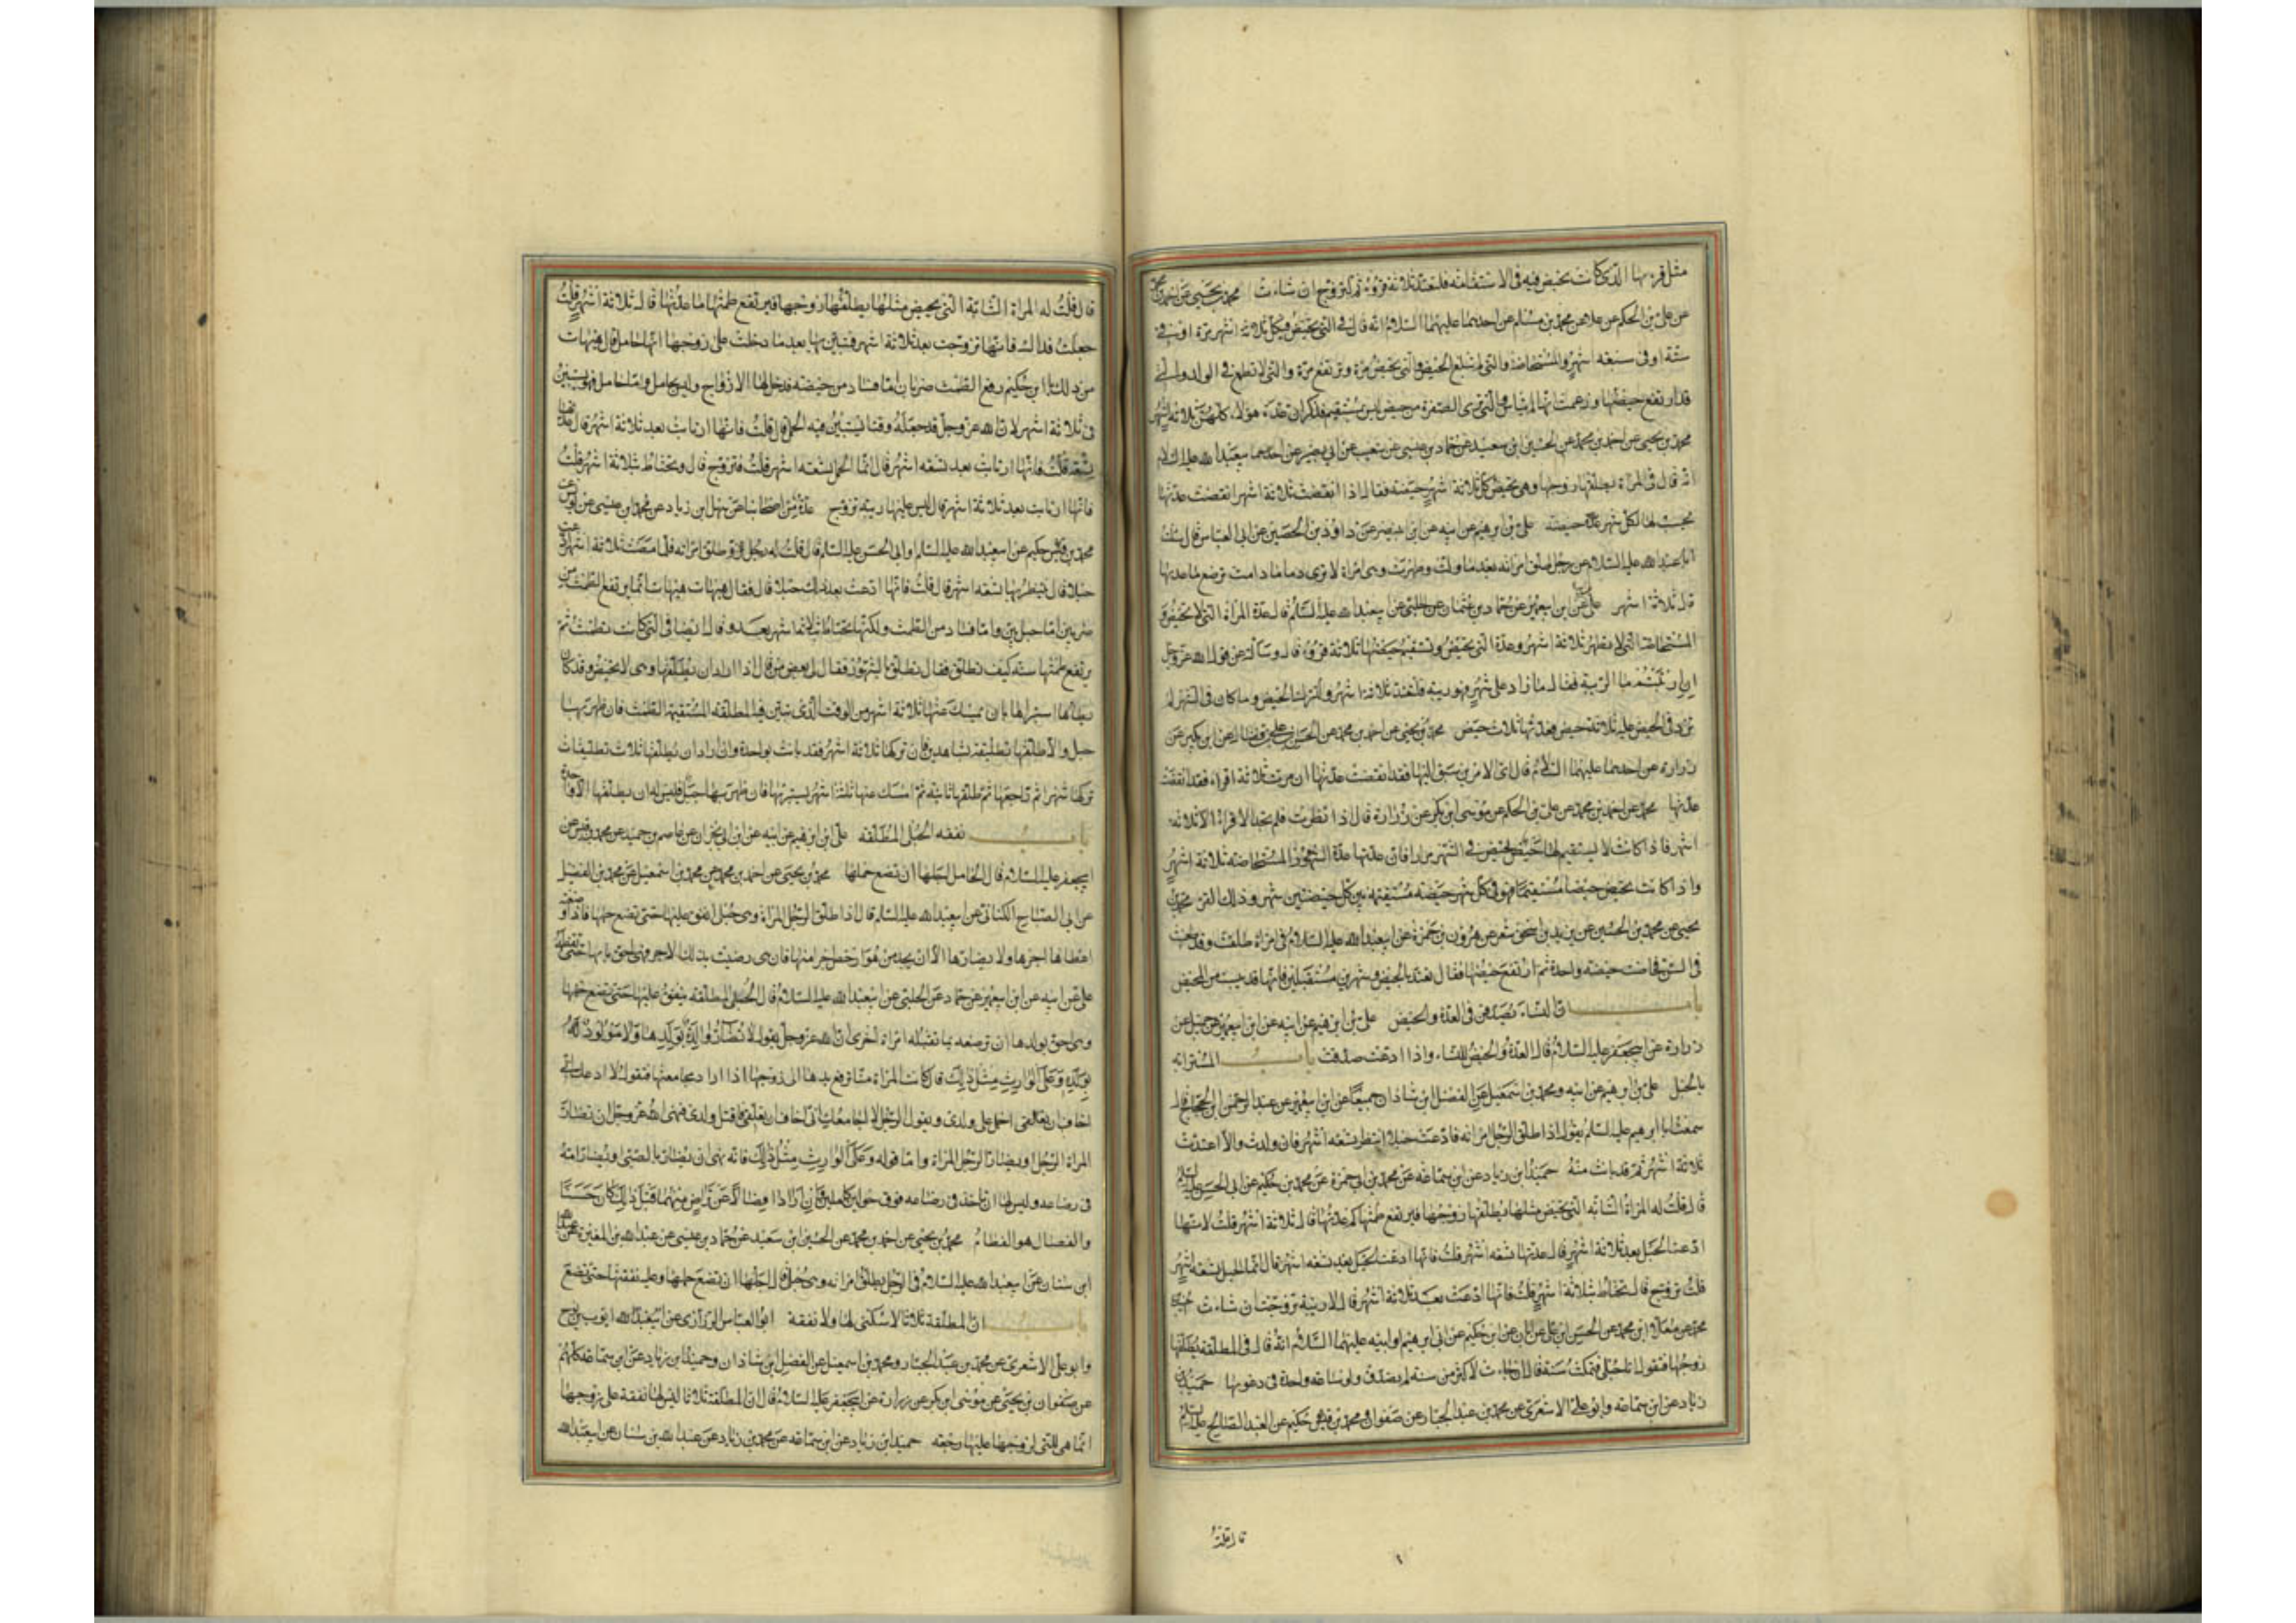 مثل قرئها الذي كانت تحيض فيه في الاستقامة فلتعتد ثلاثة قروء ثم لتزوج ان شاءت محمد بن يحيى عن احمد بن محمد
عن علي بن الحكم عن علا عن محمد بن مسلم عن احدهما عليهما السلام انه قال في التي تحيض في كل ثلاثة اشهر مرة او في
ستة او في سبعة اشهر والمستحاضة والتي لم تبلغ الحيض والتي تحيض مرة وترتفع مرة والتي لا تطمع في الولد والتي
قد ارتفع حيضها وزعمت انها لم تياس والتي ترى الصفرة من حيض ليس بمستقيم فذكر ان عدة هؤلاء كلهن ثلاثة اشهر
محمد بن يحيى عن احمد بن محمد عن الحسين ابن سعيد عن حماد بن عيسى عن شعيب عن ابي بصير عن ابيعبد الله عليه السلام
انه قال في المراة يطلقها زوجها وهي تحيض كل ثلاثة اشهر حيضة فقال اذا انقضت ثلاثة اشهر انقضت عدتها
يحسب لها لكل شهر حيضة علي بن ابرهيم عن ابيه عن ابن ابي نصر عن داود بن الحصين عن ابي العباس قال سئلت
ابا عبد الله عليه السلام عن رجل طلق امراته بعد ما ولدت وطهرت وهي امراة لا ترى دما ما دامت ترضع ما عدتها
قال ثلاثة اشهر علي عن ابن ابيعمير عن حماد بن عثمان عن الحلبي عن ابيعبد الله عليه السلام قال عدة المراة التي لا تحيض و
المستحاضة التي لا تطهر ثلاثة اشهر وعدة التي تحيض ويستقيم حيضها ثلاثة قروء قال وسالته عن قول الله عز وجل
ان ارتبتم ما الريبة فقال ما زاد على شهر فهو ريبة فلتعتد ثلاثة اشهر ولتترك الحيض وما كان في الشهر لم
تزد في الحيض عليه ثلاثة حيض فعدتها ثلاث حيض محمد بن يحيى عن احمد بن محمد عن الحسن بن علي بن فضال عن ابن بكير عن
زرارة عن احدهما عليهما السلام قال اي الامرين سبق اليها فقد انقضت عدتها ان مرت ثلاثة اقراء فقد انقضت
عدتها محمد عن احمد بن محمد عن علي بن الحكم عن موسى ابن بكر عن زرارة قال اذا نظرت فلم تجد الاقراء الا ثلاثة
اشهر فاذا كانت لا يستقيم لها حيض تحيض في الشهر مرارا فان عدتها عدة المستحاضة ثلاثة اشهر
واذا كانت تحيض حيضا مستقيما فهو في كل شهر حيضة مستقيمة بين كل حيضتين شهر وذلك القرء محمد بن
يحيى عن محمد بن الحسين عن يزيد بن اسحق شعر عن هرون بن حمزة عن ابيعبد الله عليه السلام في امراة طلقت وقد طعنت
في السن فحاضت حيضة واحدة ثم ارتفع حيضها فقال تعتد بالحيض وشهرين مستقبلين فانها قد يئست من المحيض
باب ان النساء يصدقن في العدة والحيض علي بن ابرهيم عن ابيه عن ابن ابيعمير عن جميل عن
زرارة عن ابيجعفر عليه السلام قال العدة والحيض للنساء واذا ادعت صدقت باب المسترابة
بالحبل علي بن ابرهيم عن ابيه ومحمد بن اسمعيل عن الفضل ابن شاذان جميعا عن ابن ابيعمير عن عبد الرحمن ابن الحجاج قال
سمعت ابا ابرهيم عليه السلام يقول اذا طلق الرجل امراته فادعت حبلا انتظر تسعة اشهر فان ولدت والا اعتدت
ثلاثة اشهر ثم قد بانت منه حميد ابن زياد عن ابن سماعة عن محمد بن ابي حمزة عن محمد بن حكيم عن ابي الحسن عليه السلام
قال قلت له المراة الشابة التي تحيض مثلها يطلقها زوجها فيرتفع طمثها كم عدتها قال ثلاثة اشهر قلت لانها
ادعت الحبل بعد ثلاثة اشهر قال عدتها تسعة اشهر قلت فانها ادعت الحبل بعد تسعة اشهر قال انما الحبل تسعة اشهر
قلت تزوج قال تحتاط بثلاثة اشهر قلت فانها ادعت بعد ثلاثة اشهر قال لا ريبة تزوجت ان شاءت
محمد عن معلى ابن محمد عن الحسن ابن علي عن ابان عن ابن حكيم عن ابي ابرهيم او ابيه عليهما السلام انه قال في المطلقة يطلقها
زوجها فتقول انا حبلى فتمكث سنة فقال ان جاءت لاكثر من سنة لم تصدق ولو ساعة واحدة في دعويها حميد بن
زياد عن ابن سماعة وابو علي الاشعري عن محمد بن عبد الجبار عن صفوان عن محمد بن حكيم عن العبد الصالح عليه السلام
قال قلت
قال قلت له المراة الشابة التي تحيض مثلها يطلقها زوجها فيرتفع طمثها ما عدتها قال ثلاثة اشهر قلت
جعلت فداك فانها تزوجت بعد ثلاثة اشهر فتبين بها بعد ما دخلت على زوجها انها حامل قال هيهات
من ذلك يا ابن حكيم رفع الطمث ضربان اما فساد من حيضة فقد حل لها الازواج وليس بحامل واما حامل فهو يستبين
في ثلاثة اشهر لان الله عز وجل قد جعله وقتا يستبين فيه الحمل قال قلت فانها ارتابت بعد ثلاثة اشهر قال عدتها
تسعة قلت فانها ارتابت بعد تسعة اشهر قال انما الحمل تسعة اشهر قلت فتزوج قال وتحتاط بثلاثة اشهر قلت
فانها ارتابت بعد ثلاثة اشهر قال ليس عليها ريبة تزوج عدة من اصحابنا عن سهل ابن زياد عن محمد ابن عيسى عن يونس عن
محمد بن حكيم عن ابيعبد الله عليه السلام او ابي الحسن عليه السلام قال قلت له رجل طلق امراته فلما مضت ثلاثة اشهر ادعت
حبلا قال ينتظر بها تسعة اشهر قال قلت فانها ادعت بعد ذلك حبلا قال فقال هيهات هيهات انما يرتفع الطمث من
ضربين اما حبل بين واما فساد من الطمث ولكنها تحتاط بثلاثة اشهر بعد وقال ايضا في التي كانت تطمث ثم
يرتفع طمثها سنة كيف تطلق فقال تطلق بالشهور فقال لي بعض من قال اذا اراد ان يطلقها وهي لا تحيض وقد كان
يطاها استبراها بان يمسك عنها ثلاثة اشهر من الوقت الذي تبين فيه المطلقة المستقيمة الطمث فان ظهر بها
حبل والا طلقها تطليقة بشاهدين فان تركها ثلاثة اشهر فقد بانت بواحدة وان اراد ان يطلقها ثلاث تطليقات
تركها شهرا ثم راجعها ثم طلقها ثانية ثم امسك عنها ثلثة اشهر يستبريها فان ظهر بها حبل فليس له ان يطلقها الا واحدة
باب نفقة الحبلى المطلقة علي ابن ابرهيم عن ابيه عن ابن ابي نجران عن عاصم بن حميد عن محمد بن قيس عن
ابيجعفر عليه السلام قال الحامل اجلها ان تضع حملها محمد بن يحيى عن احمد بن محمد عن محمد بن اسمعيل عن محمد بن الفضيل
عن ابي الصباح الكناني عن ابيعبد الله عليه السلام قال اذا طلق الرجل المراة وهي حبلى انفق عليها حتى تضع حملها فاذا وضعته
اعطاها اجرها ولا يضارها الا ان يجد من هو ارخص اجرا منها فان هي رضيت بذلك الاجر فهي احق بابنها حتى تفطمه
علي عن ابيه عن ابن ابيعمير عن حماد عن الحلبي عن ابيعبد الله عليه السلام قال الحبلى المطلقة ينفق عليها حتى تضع حملها
وهي احق بولدها ان ترضعه بما تقبله امراة اخرى ان الله عز وجل يقول لا تضار والدة بولدها ولا مولود له
بولده وعلى الوارث مثل ذلك قال كانت المراة منا ترفع يدها الى زوجها اذا اراد مجامعتها فتقول لا ادعك اني
اخاف ان احمل على ولدي ويقول الرجل لا اجامعك اني اخاف ان تعلقي فاقتل ولدي فنهى الله عز وجل ان تضار
المراة الرجل او يضار الرجل المراة واما قوله وعلى الوارث مثل ذلك فانه نهى ان يضار بالصبي او يضار امه
في رضاعه وليس لها ان تاخذ في رضاعه فوق حولين كاملين فان ارادا فصالا عن تراض منهما قبل ذلك كان حسنا
والفصال هو الفطام محمد بن يحيى عن احمد بن محمد عن الحسين ابن سعيد عن حماد بن عيسى عن عبد الله بن المغيرة عن عبد الله
ابن سنان عن ابيعبد الله عليه السلام في الرجل يطلق امراته وهي حبلى قال اجلها ان تضع حملها وعليه نفقتها حتى تضع
باب ان المطلقة ثلاثا لا سكنى لها ولا نفقة ابو العباس الرزازي عن ايوب بن نوح
وابو علي الاشعري عن محمد بن عبد الجبار ومحمد بن اسمعيل عن الفضل ابن شاذان وحميد ابن زياد عن ابن سماعة كلهم
عن صفوان بن يحيى عن موسى ابن بكر عن زرارة عن ابيجعفر عليه السلام قال ان المطلقة ثلاثا ليس لها نفقة على زوجها
انما هي للتي لزوجها عليها رجعة حميد ابن زياد عن ابن سماعة عن محمد بن زياد عن عبد الله بن سنان عن ابيعبد الله